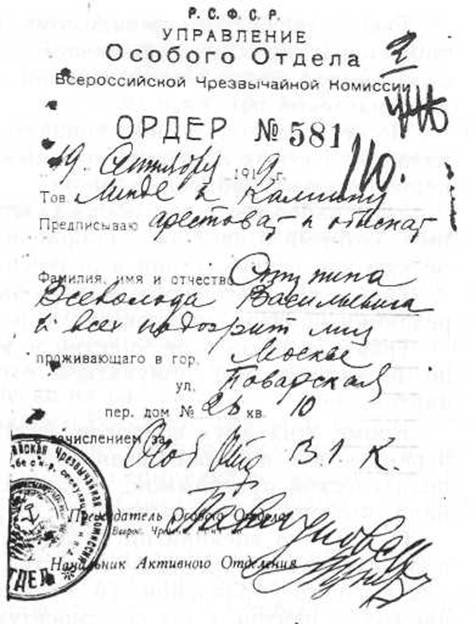 Р. С. Ф. С. Р.
УПРАВЛЕНИЕ
Особого Отдела
Всероссийской Чрезвычайной Комиссии
ОРДЕР № 581
19 1919 г.
Тов. Линде и
Предписываю арестоват и обискат
Фамилия, имя и отчество
Всеволода Васильевича
и всех подозрит лиц
проживающаго в гор. Москве
ул. Поварская
пер. дом № 26 кв. 10
с зачислением за Ос. Отд. В. Ч. К.
Председатель Особого Отдела
Всерос. Чр.
Начальник Активного Отделения